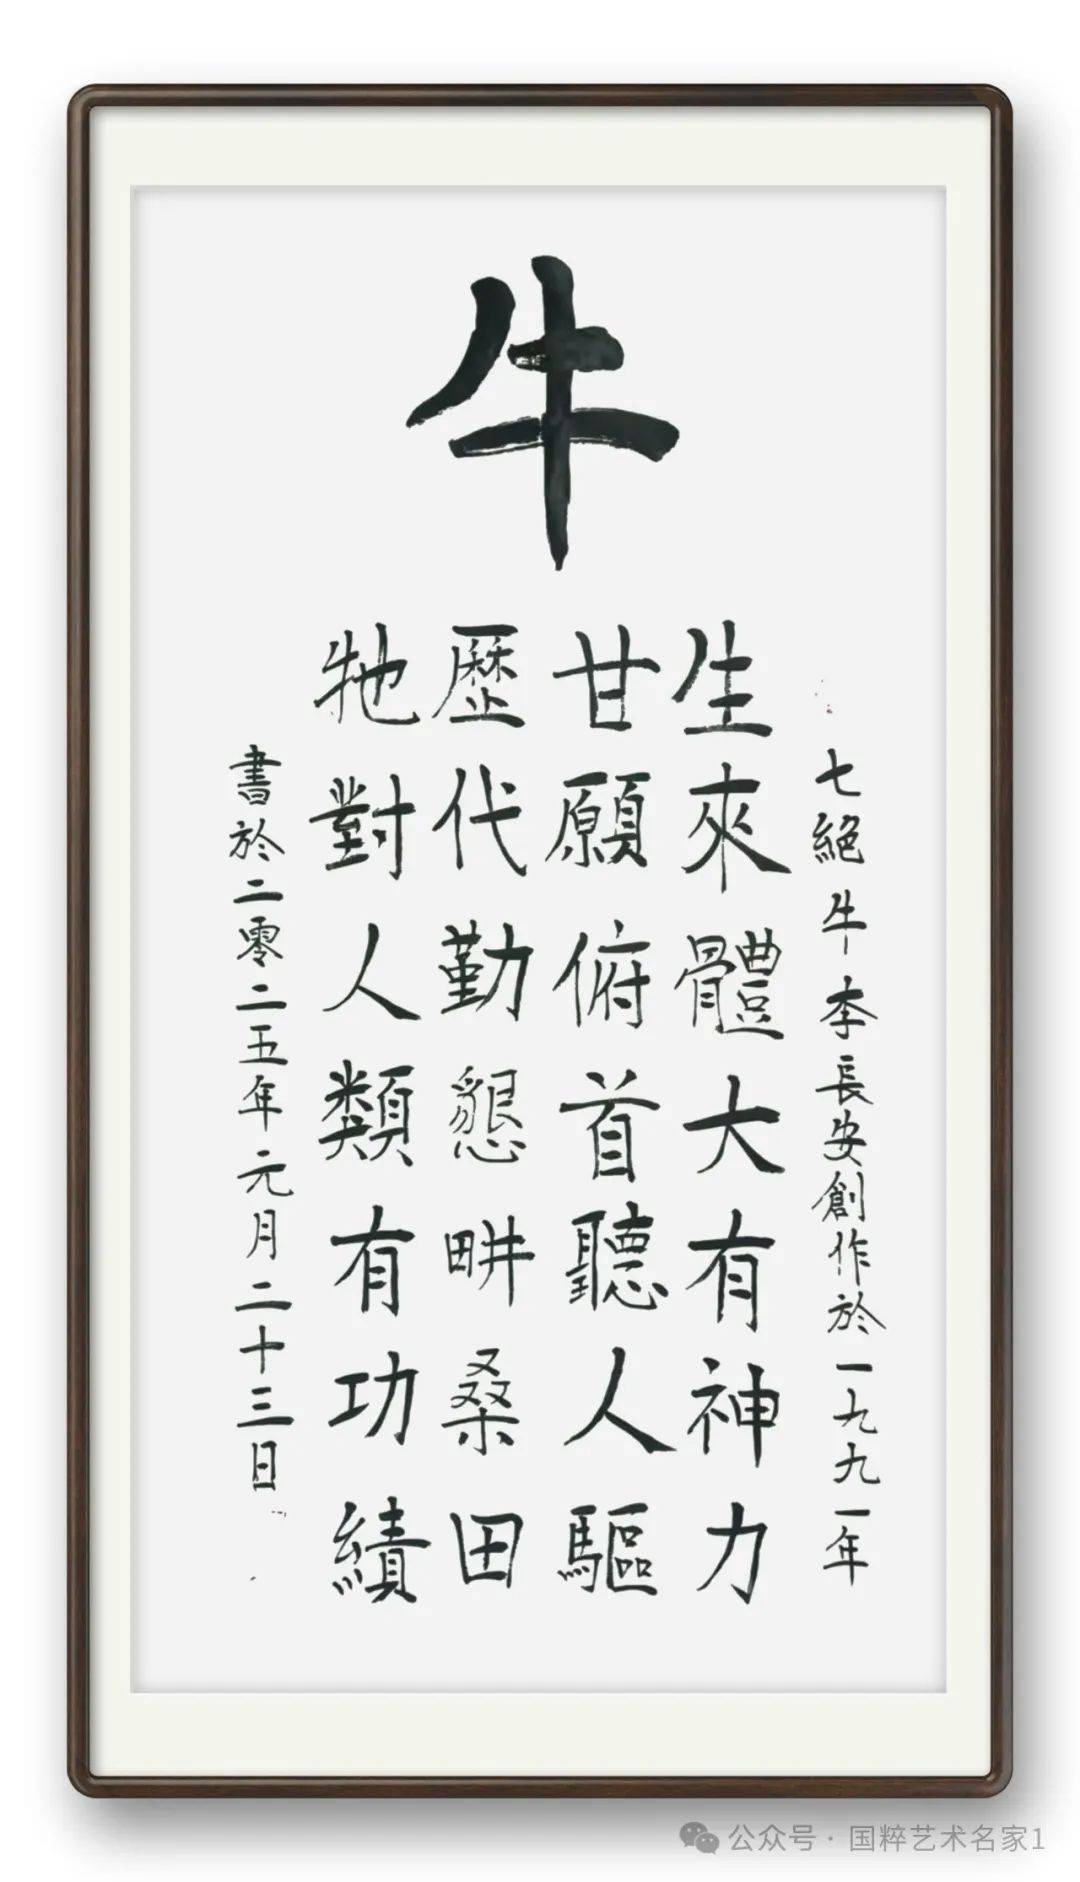 牛
七絕 牛 李長安創作於一九九一年
生來體大有神力
甘願俯首聽人驅
歷代勤懇畊桑田
牠對人類有功績
書於二零二五年元月二十三日
公众号 · 国粹艺术名家1